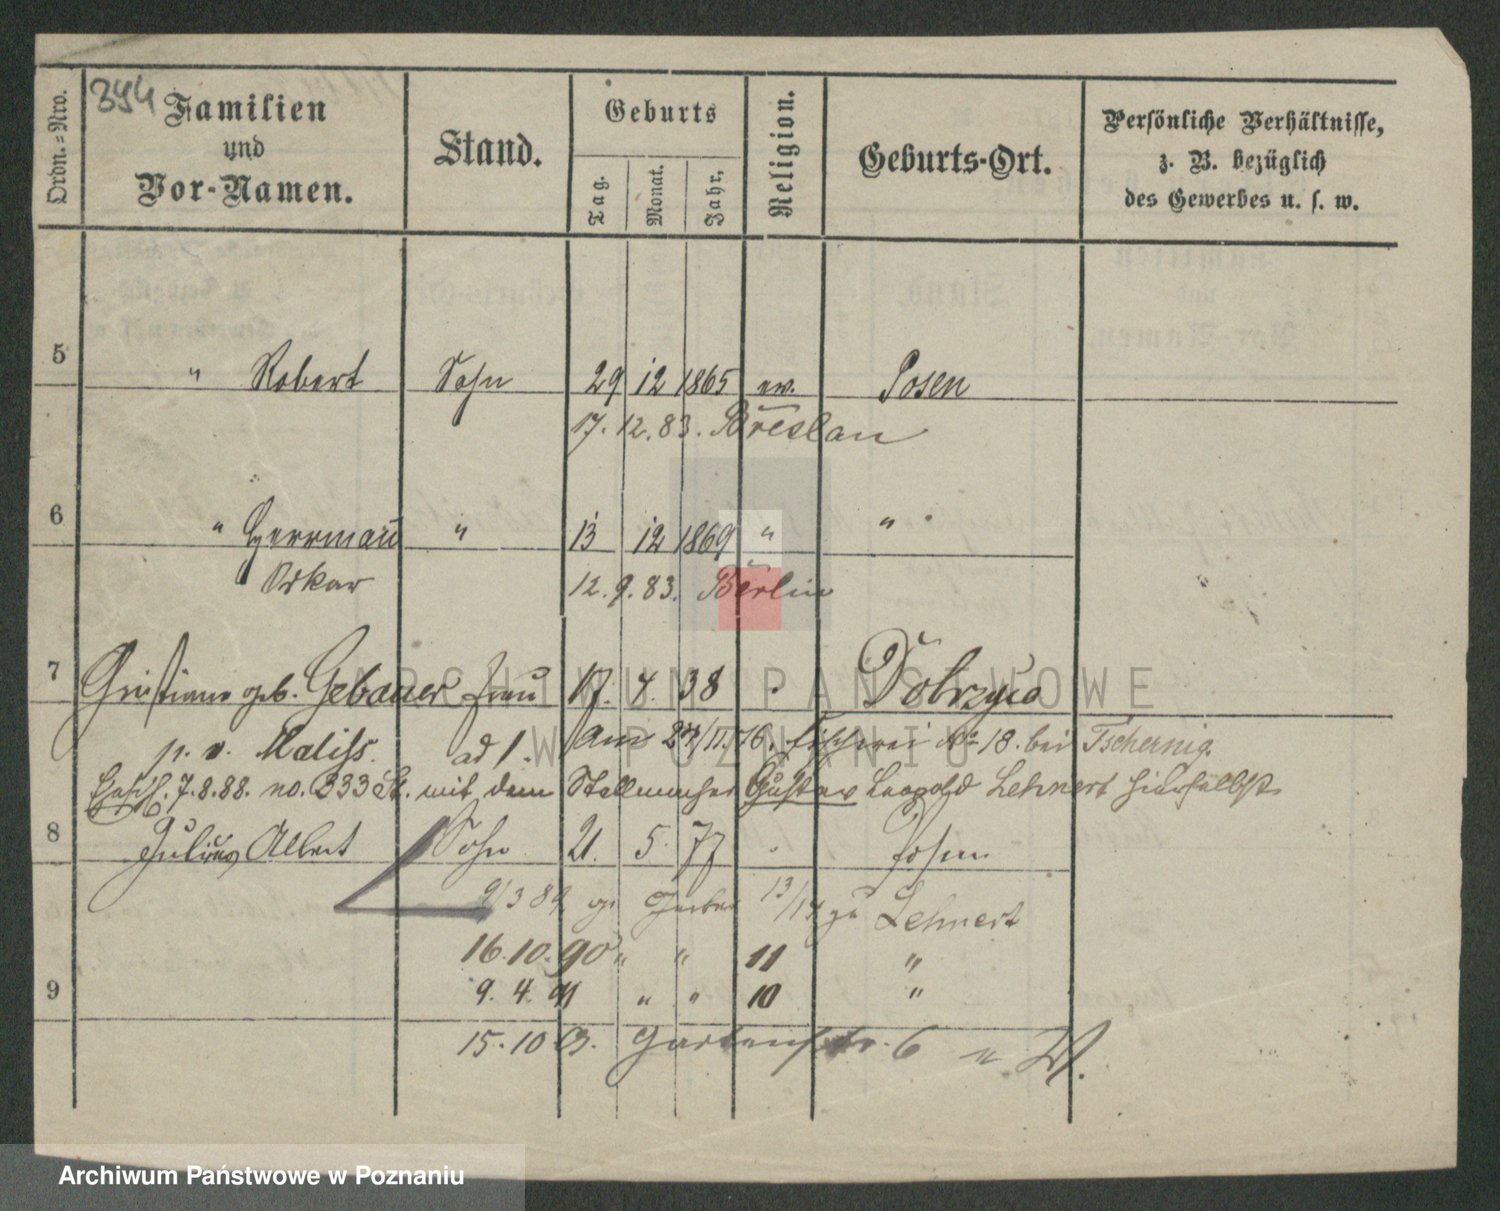 394
Ordn.=Nro.
Familien
und
Vor-Namen.
Stand.
Geburts
Tag.
Monat.
Jahr,
Religion.
Geburts-Ort.
Persönliche Verhältnisse,
z. B. bezüglich
des Gewerbes u. s. w.
5 " Robert Sohn 29 12 1865 ev. Posen
17. 12. 83. Breslau
6 " Herrmann " 13 12 1869 " "
Oskar 12. 9. 83. Berlin
7 Christiane geb. Gebauer Frau 17. 4. 38 Dobrzyca
p. v. Maliss. ad 1. am 27/11. 76. Fischerei No 18. bei Tschernig.
7. 8. 88. no. 333 mit dem Stellmacher Gustav Leopold Lehnert hierselbst
8 Julius Albert Sohn 21. 5. 77 Posen
9/3 89 Gerber 13/14 zu Lehnert
16. 10. 90 " " 11 "
9. 4. 91 " " 10 "
9
15. 10. 93. Gartenstr. 6 n. W.
ARCHIWUM PAŃSTWOWE
W POZNANIU
Archiwum Państwowe w Poznaniu